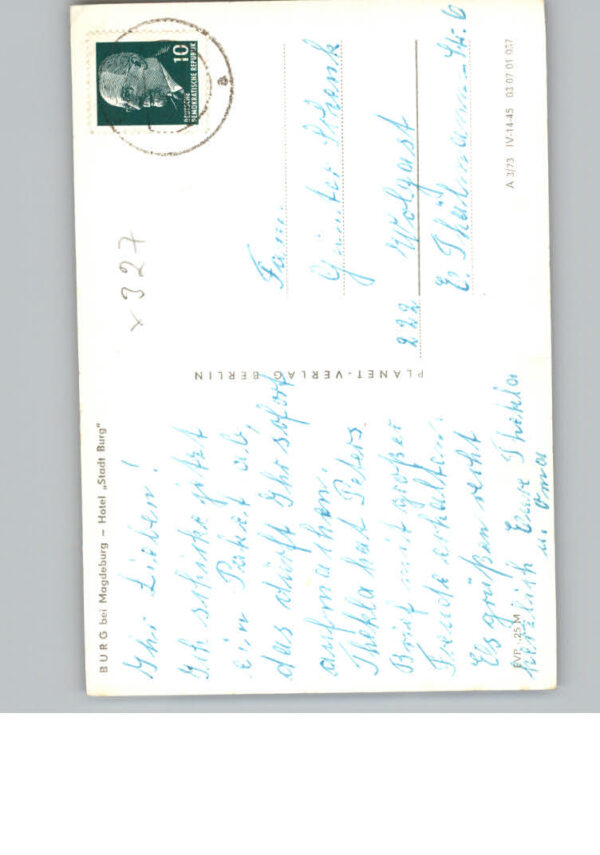 BURG bei Magdeburg – Hotel „Stadt Burg"
Ihr Lieben!
Ich schicke jetzt
ein Paket ab,
das dürft Ihr sofort
aufmachen.
Thekla hat Peters
Brief mit großer
Freude erhalten.
Es grüßen recht
herzlich Eure Thekla
u. Oma
EVP -.25 M
PLANET-VERLAG BERLIN
x 327
10
DEUTSCHE
DEMOKRATISCHE REPUBLIK
a
Fam.
Günter Schenk
222 Wolgast
E. Thälmann-Str. 6
A 3/73 IV-14-45 03 07 01 037